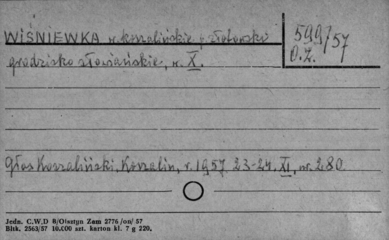 WIŚNIEWKA w. koszalińskie p. złotowski
599/57
O.Z.
grodzisko słowiańskie, w. X.
Głos Koszaliński, Koszalin, r. 1957 23-24. XI, nr. 280
Jedn. C.W.D R/Olsztyn Zam 2776/on/57
Bhk. 2563/57 10.000 szt. karton kl. 7 g 220.